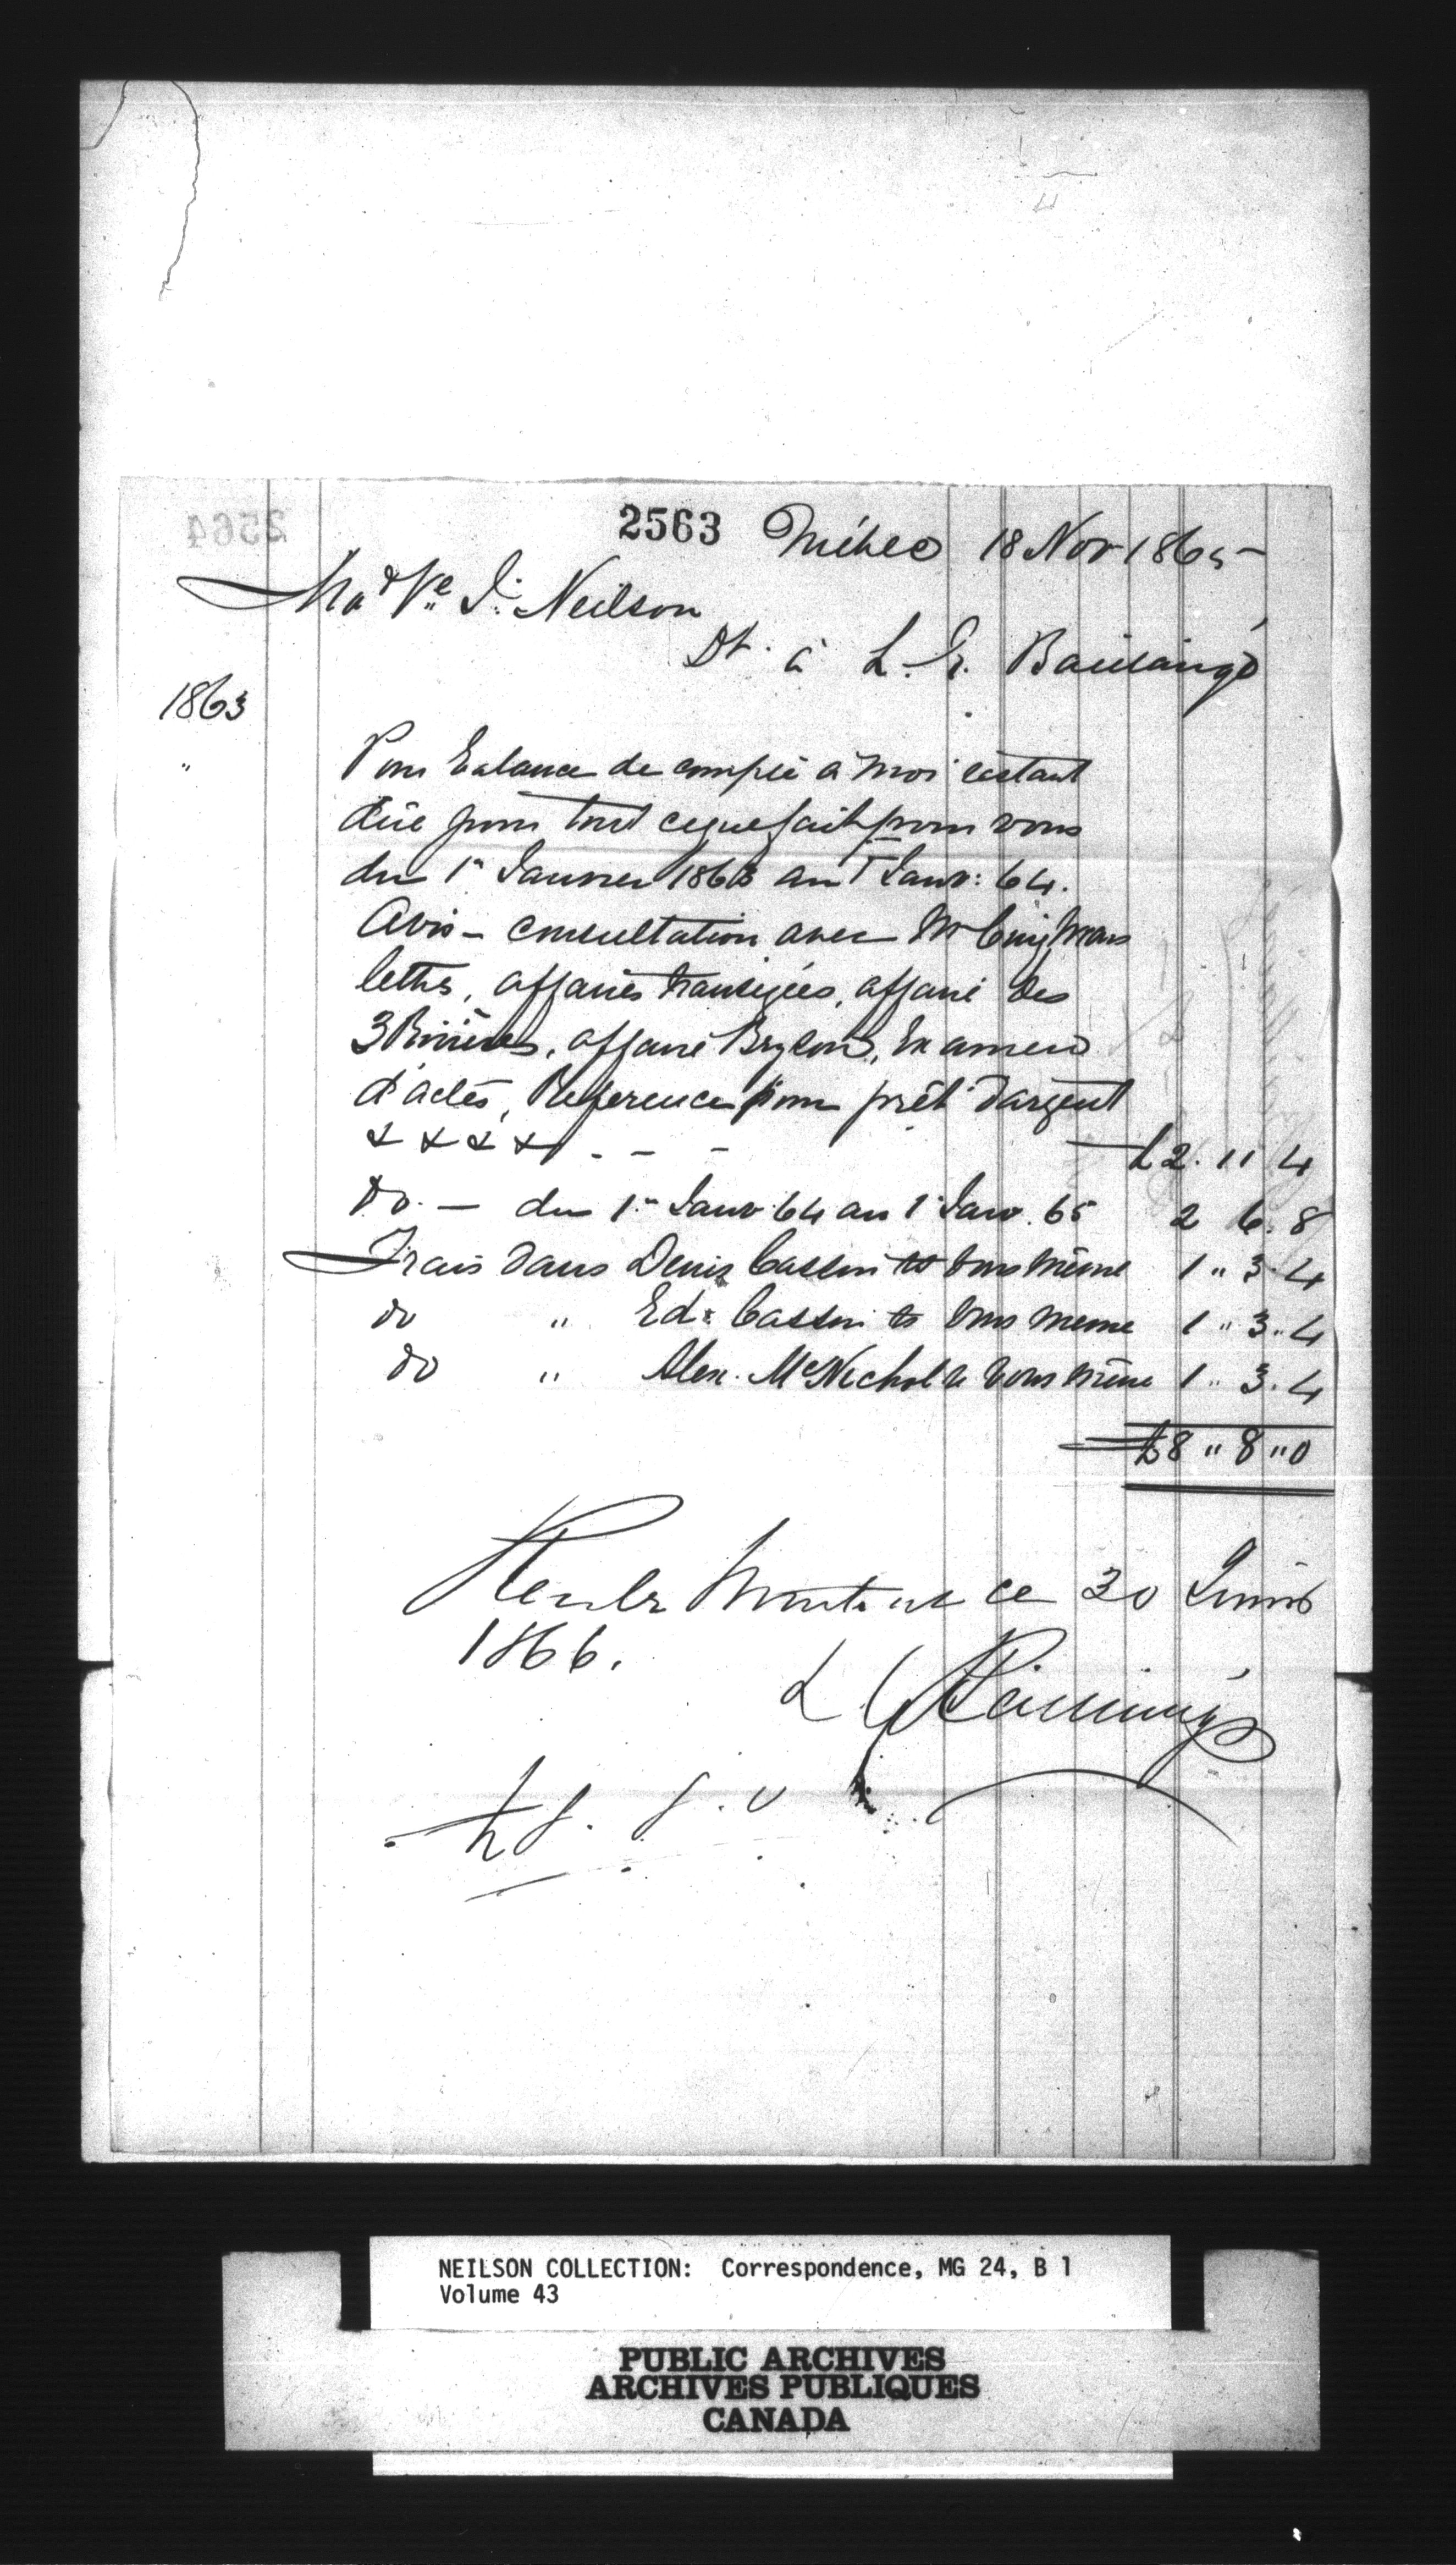 2563 Québec 18 Nov 1865
Mad Ve J. Neilson
Dt. à L. G. Baillairgé
1863
" Pour balance de compte à moi restant
dûe pour tout ce que fait pour vous
du 1r Janvier 1863 au 1r Janv: 64.
Avis - consultation avec Mr
lettres, affaires transigées, affaire des
3 Rivières, affaire Examen
d'actes, Reference pour prêt d'argent
& & & & - - - £2. 11 4
Do. - du 1r Janv 64 au 1r Janv. 65 2 6. 8
Frais dans Denis Cassin vs vous même 1 " 3. 4
do " Ed: Cassin vs vous meme 1 " 3 " 4
do " Alex. McNichol vs vous même 1 " 3. 4
£8 " 8 " 0
Reçu le Montant ce 30 Juin
1866.
L G Baillairgé
£8. 8. 0
NEILSON COLLECTION: Correspondence, MG 24, B 1
Volume 43
PUBLIC ARCHIVES
ARCHIVES PUBLIQUES
CANADA